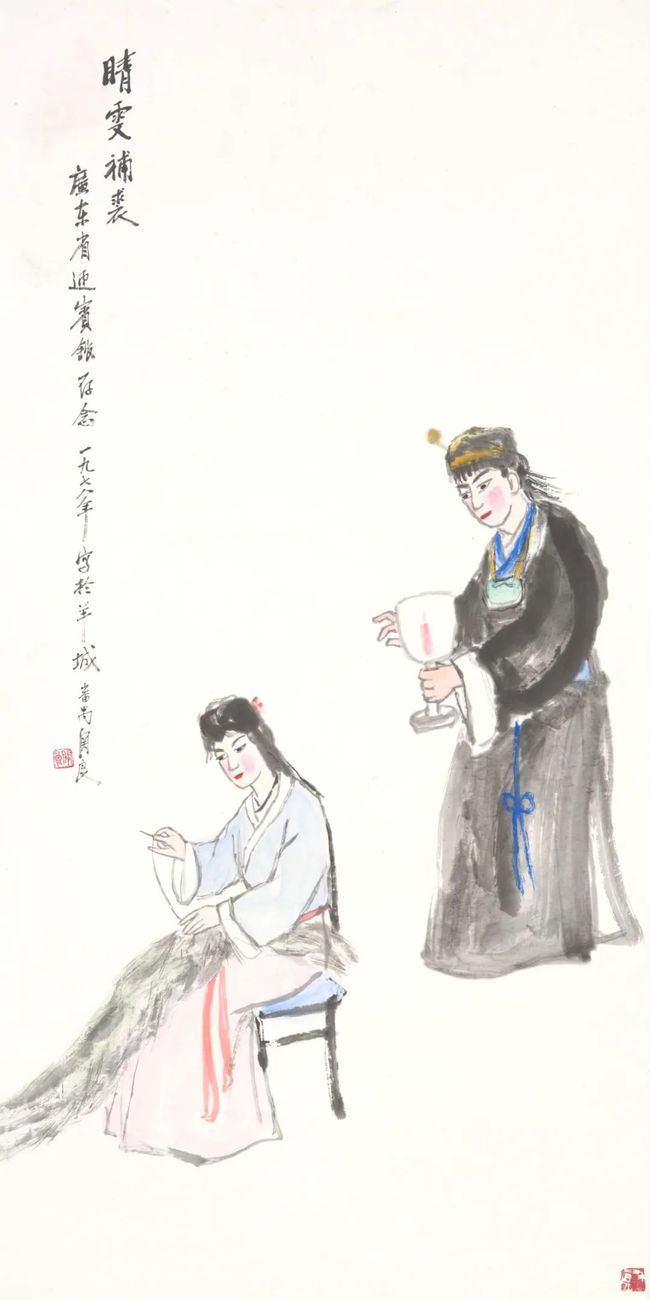 晴雯補裘
廣东省迎賓館存念 一九七八年 写於羊城
番禺 良